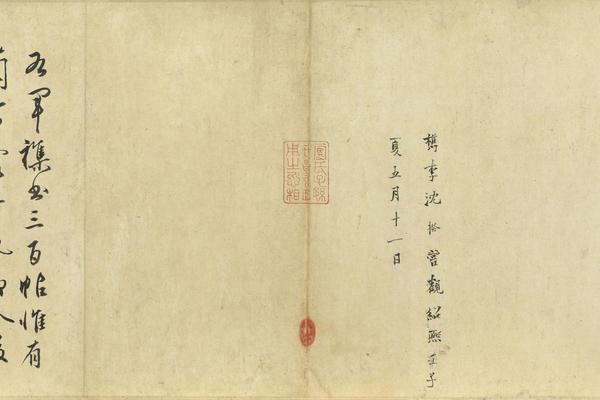 檇李沈揆嘗觀紹熙壬子
夏五月十一日
右軍禊書三百帖惟有